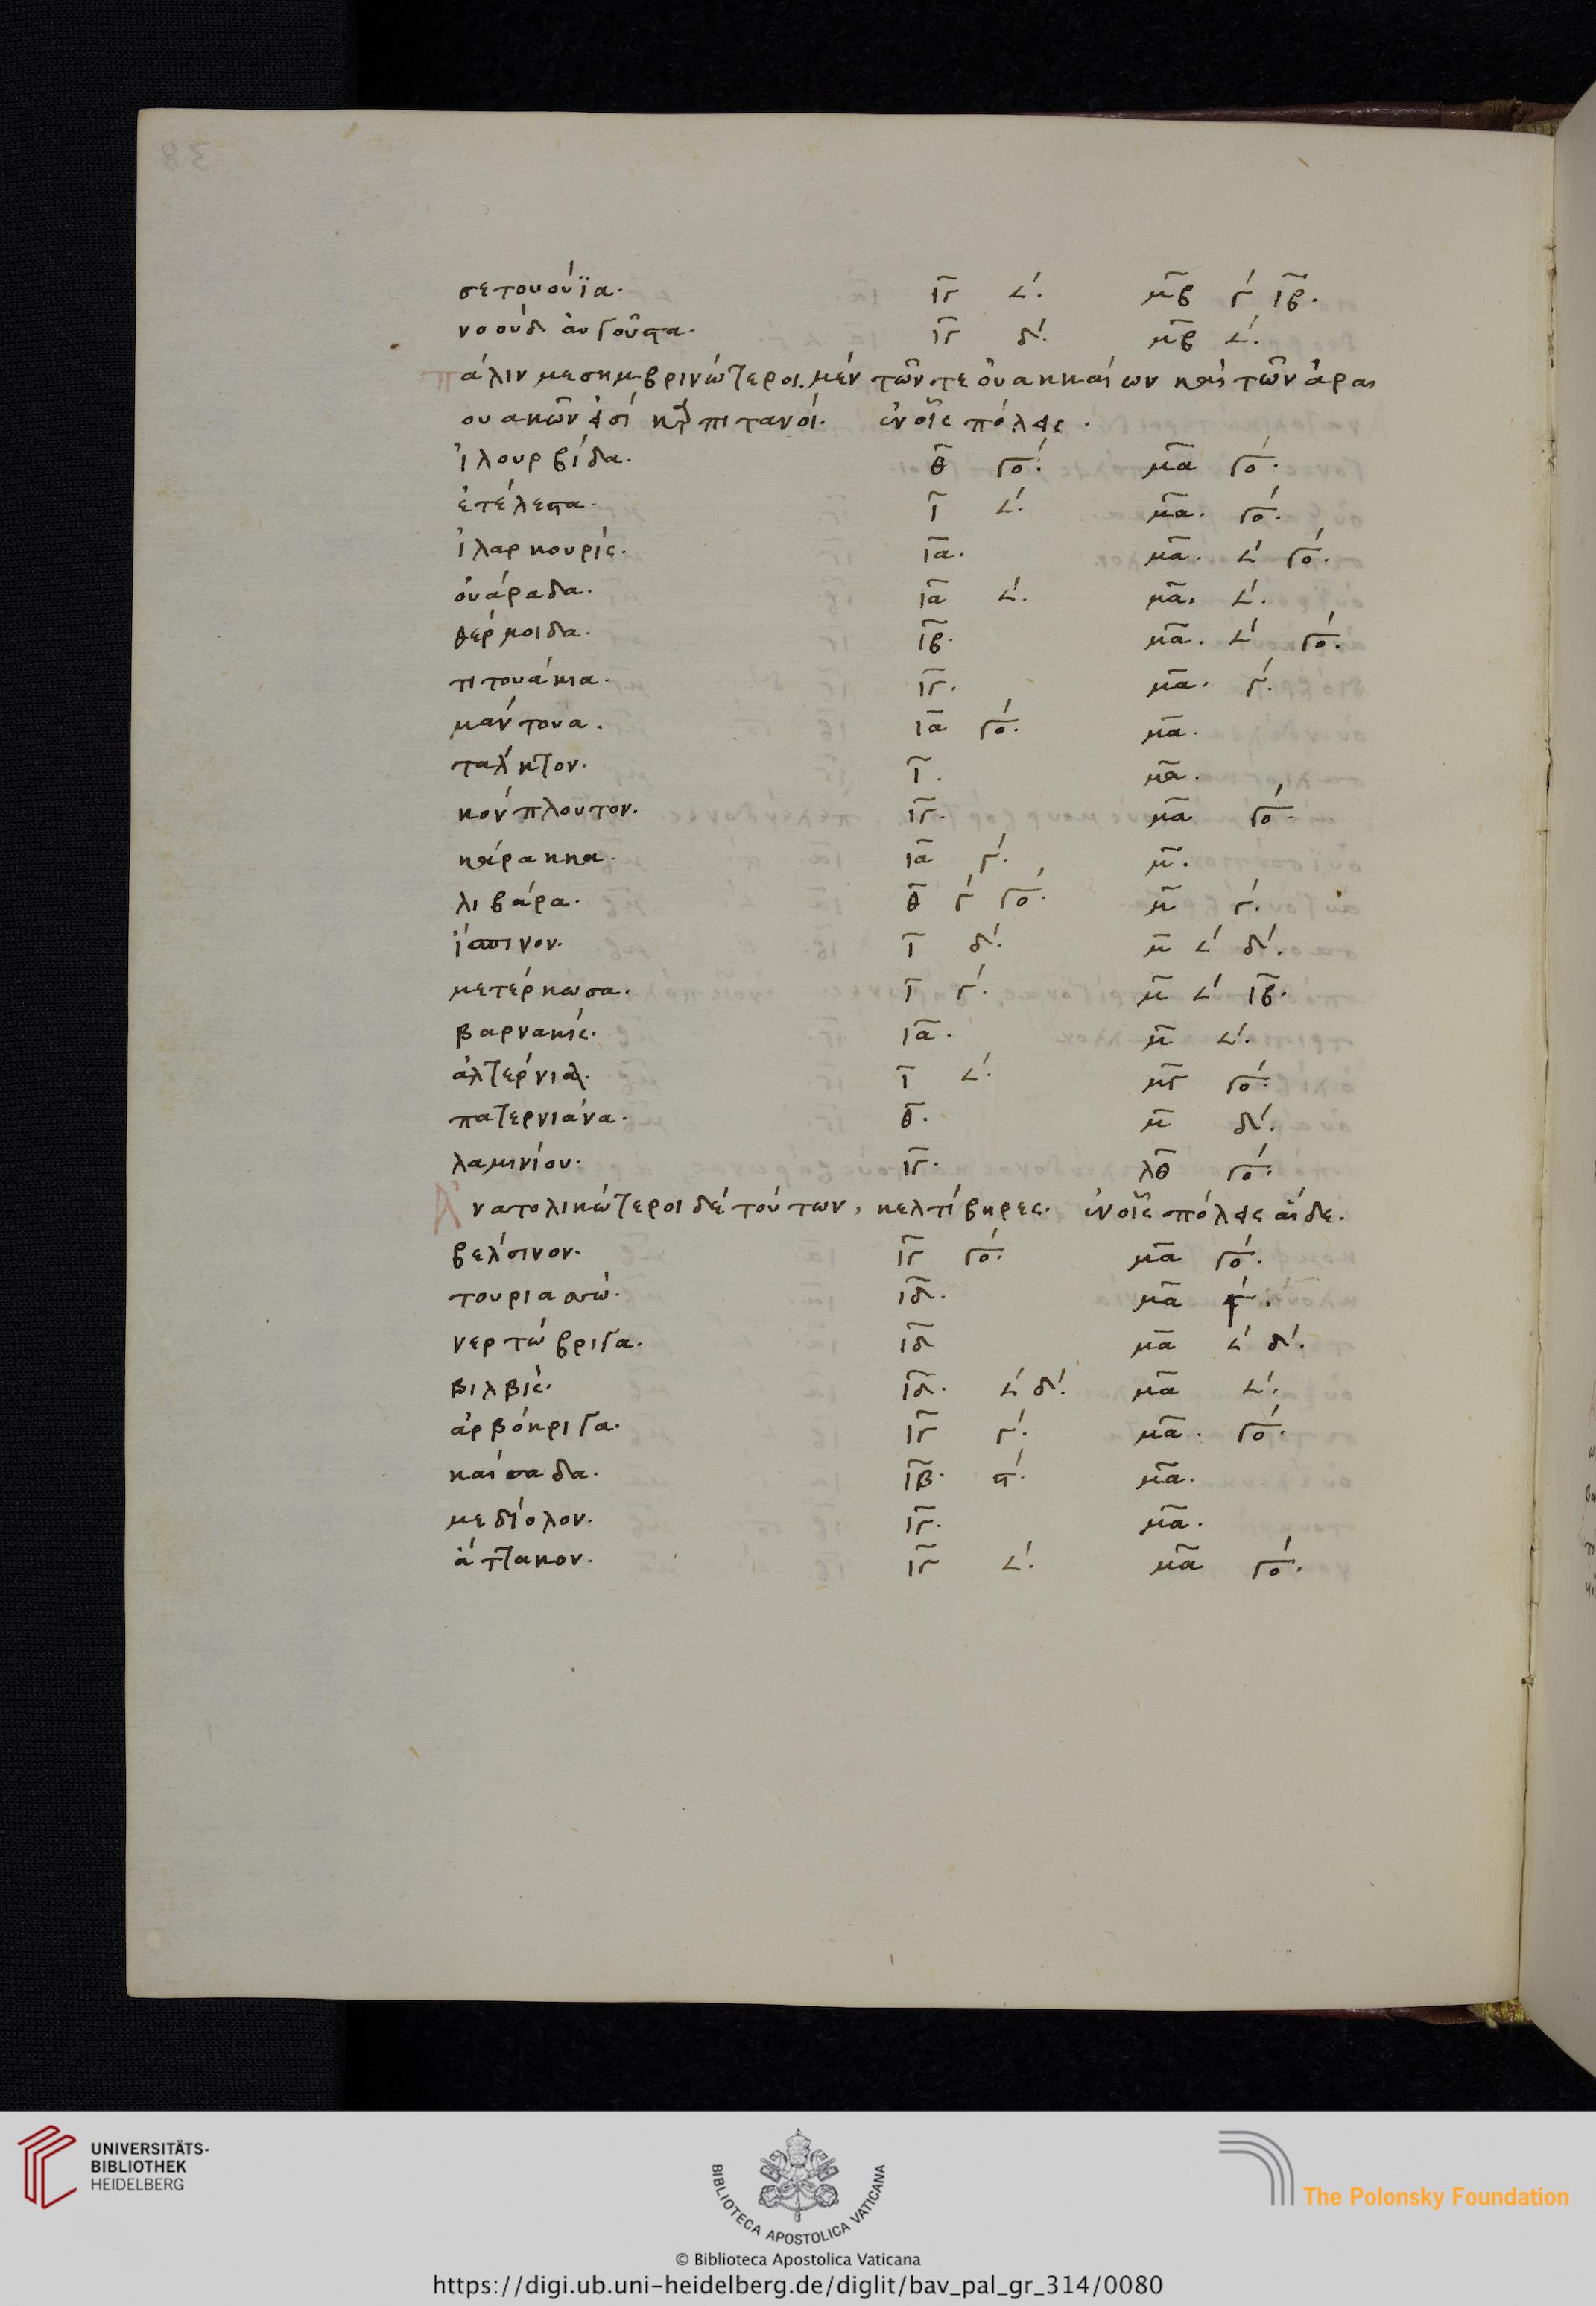 σετουούϊα. ιγ 𐅵΄. μβ γ΄ ιβ.
νοούδ αυγοῦστα. ιγ δ΄. μβ 𐅵΄.
πάλιν μεσημβρινώτεροι μέν τῶν τε ὀυακκαίων καὶ τῶν ἀραι
ουακῶν εἰσί καρπιτανοί. ἐν οἷς πόλεις.
ἰλουρβίδα. θ γο΄. μα γο΄.
ἐτέλεστα. ι 𐅵΄. μα. γο΄.
ἰλαρκουρίς. ια. μα. 𐅵΄ γο΄.
ὀυάραδα. ια 𐅵΄. μα. 𐅵΄.
θέρμοιδα. ιβ. μα. 𐅵΄ γο΄.
τιτουάκια. ιγ. μα. γ΄.
μάντουα. ια γο΄. μα.
ταλήκτον. ι. μα.
κόνπλουτον. ιγ. μα γο΄.
κάρακκα. ια γ΄. μ.
λιβάρα. θ γ΄ γο΄. μ γ΄.
ἰάσσινον. ι δ΄. μ 𐅵΄ δ΄.
μετέρκωσα. ι γ΄. μ 𐅵΄ ιβ.
βαρνακίς. ια. μ 𐅵΄.
ἀλτέρνια. ι 𐅵΄. μγ γο΄.
πατερνιάνα. θ. μ δ΄.
λαμινίου. ιγ. λθ γο΄.
Ἀνατολικώτεροι δέ τούτων, κελτίβηρες. ἐν οἷς πόλεις αἵδε.
βελσινον. ιγ γο΄. μα γο΄.
τουριασσώ. ιδ. μα
νερτώβριγα. ιδ μα 𐅵΄ δ΄.
βιλβίς. ιδ. 𐅵΄ δ΄. μα 𐅵΄.
ἀρβόκριγα. ιγ γ΄. μα. γο΄.
καίσαδα. ιβ. ϛ΄. μα.
μεδίολον. ιγ. μα.
ἄττακον. ιγ 𐅵΄. μα γο΄.
UNIVERSITÄTS-
BIBLIOTHEK
HEIDELBERG
BIBLIOTECA APOSTOLICA VATICANA
The Polonsky Foundation
© Biblioteca Apostolica Vaticana
https://digi.ub.uni-heidelberg.de/diglit/bav_pal_gr_314/0080